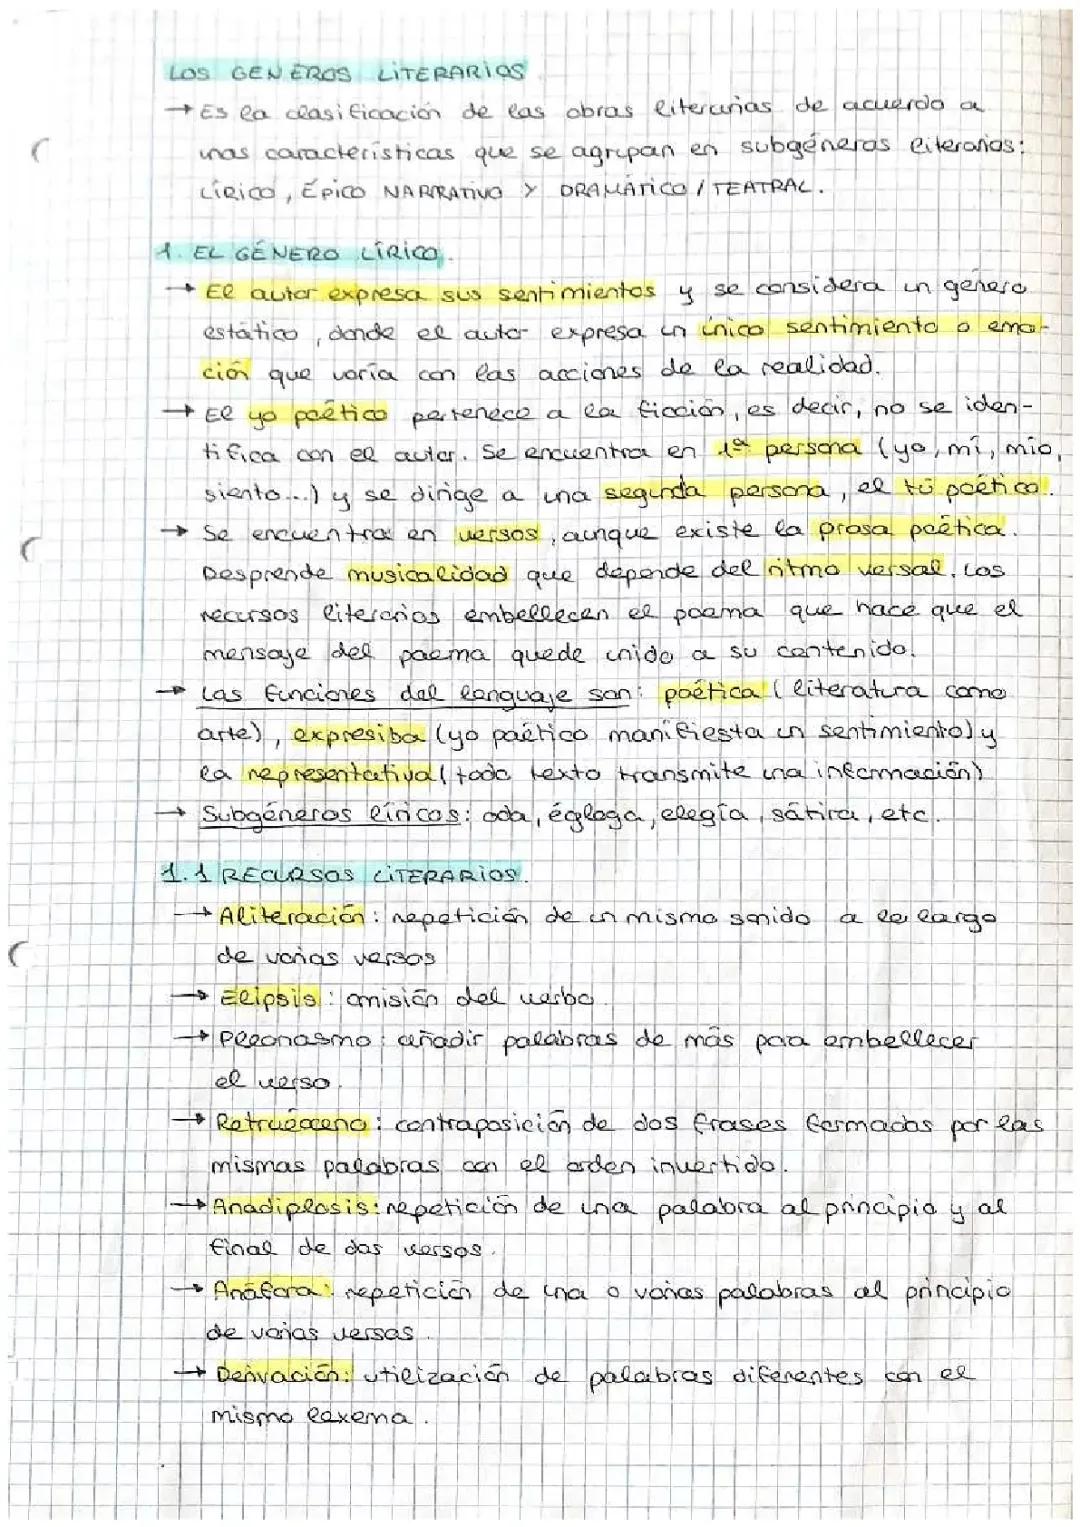 LOS GENEROS LITERARIOS
→ Es la clasificación de las obras literarias de acuerdo a
unas características que se agrupan en subgéneros literarios:
LÍRICO, ÉPICO NARRATIVO Y DRAMÁTICO / TEATRAL.
1. EL GÉNERO LÍRICO.
→ El autor expresa sus sentimientos y se considera un género
estático, donde el autor expresa un único sentimiento o emo-
ción que varía con las acciones de la realidad.
→ El yo poético pertenece a la ficción, es decir, no se iden-
tifica con el autor. Se encuentra en 1ª persona (yo, mí, mío,
siento...) y se dirige a una segunda persona, el tú poético.
→ Se encuentra en versos, aunque existe la prosa poética.
Desprende musicalidad que depende del ritmo versal. Los
recursos literarios embellecen el poema que hace que el
mensaje del poema quede unido a su contenido.
→ Las funciones del lenguaje son: poética (literatura como
arte), expresiba (yo poético manifiesta un sentimiento) y
la representativa (todo texto transmite una información)
→ Subgéneros líricos: oda, égloga, elegía, sátira, etc.
1.1 RECURSOS LITERARIOS.
→ Aliteración: repetición de un mismo sonido a lo largo
de varios versos
→ Elipsis: omisión del verbo.
→ Pleonasmo: añadir palabras de más para embellecer
el verso.
→ Retruécano: contraposición de dos frases formadas por las
mismas palabras con el orden invertido.
→ Anadiplosis: repetición de una palabra al principio y al
final de dos versos.
→ Anáfora: repetición de una o varias palabras al principio
de varios versos.
→ Derivación: utilización de palabras diferentes con el
mismo lexema.